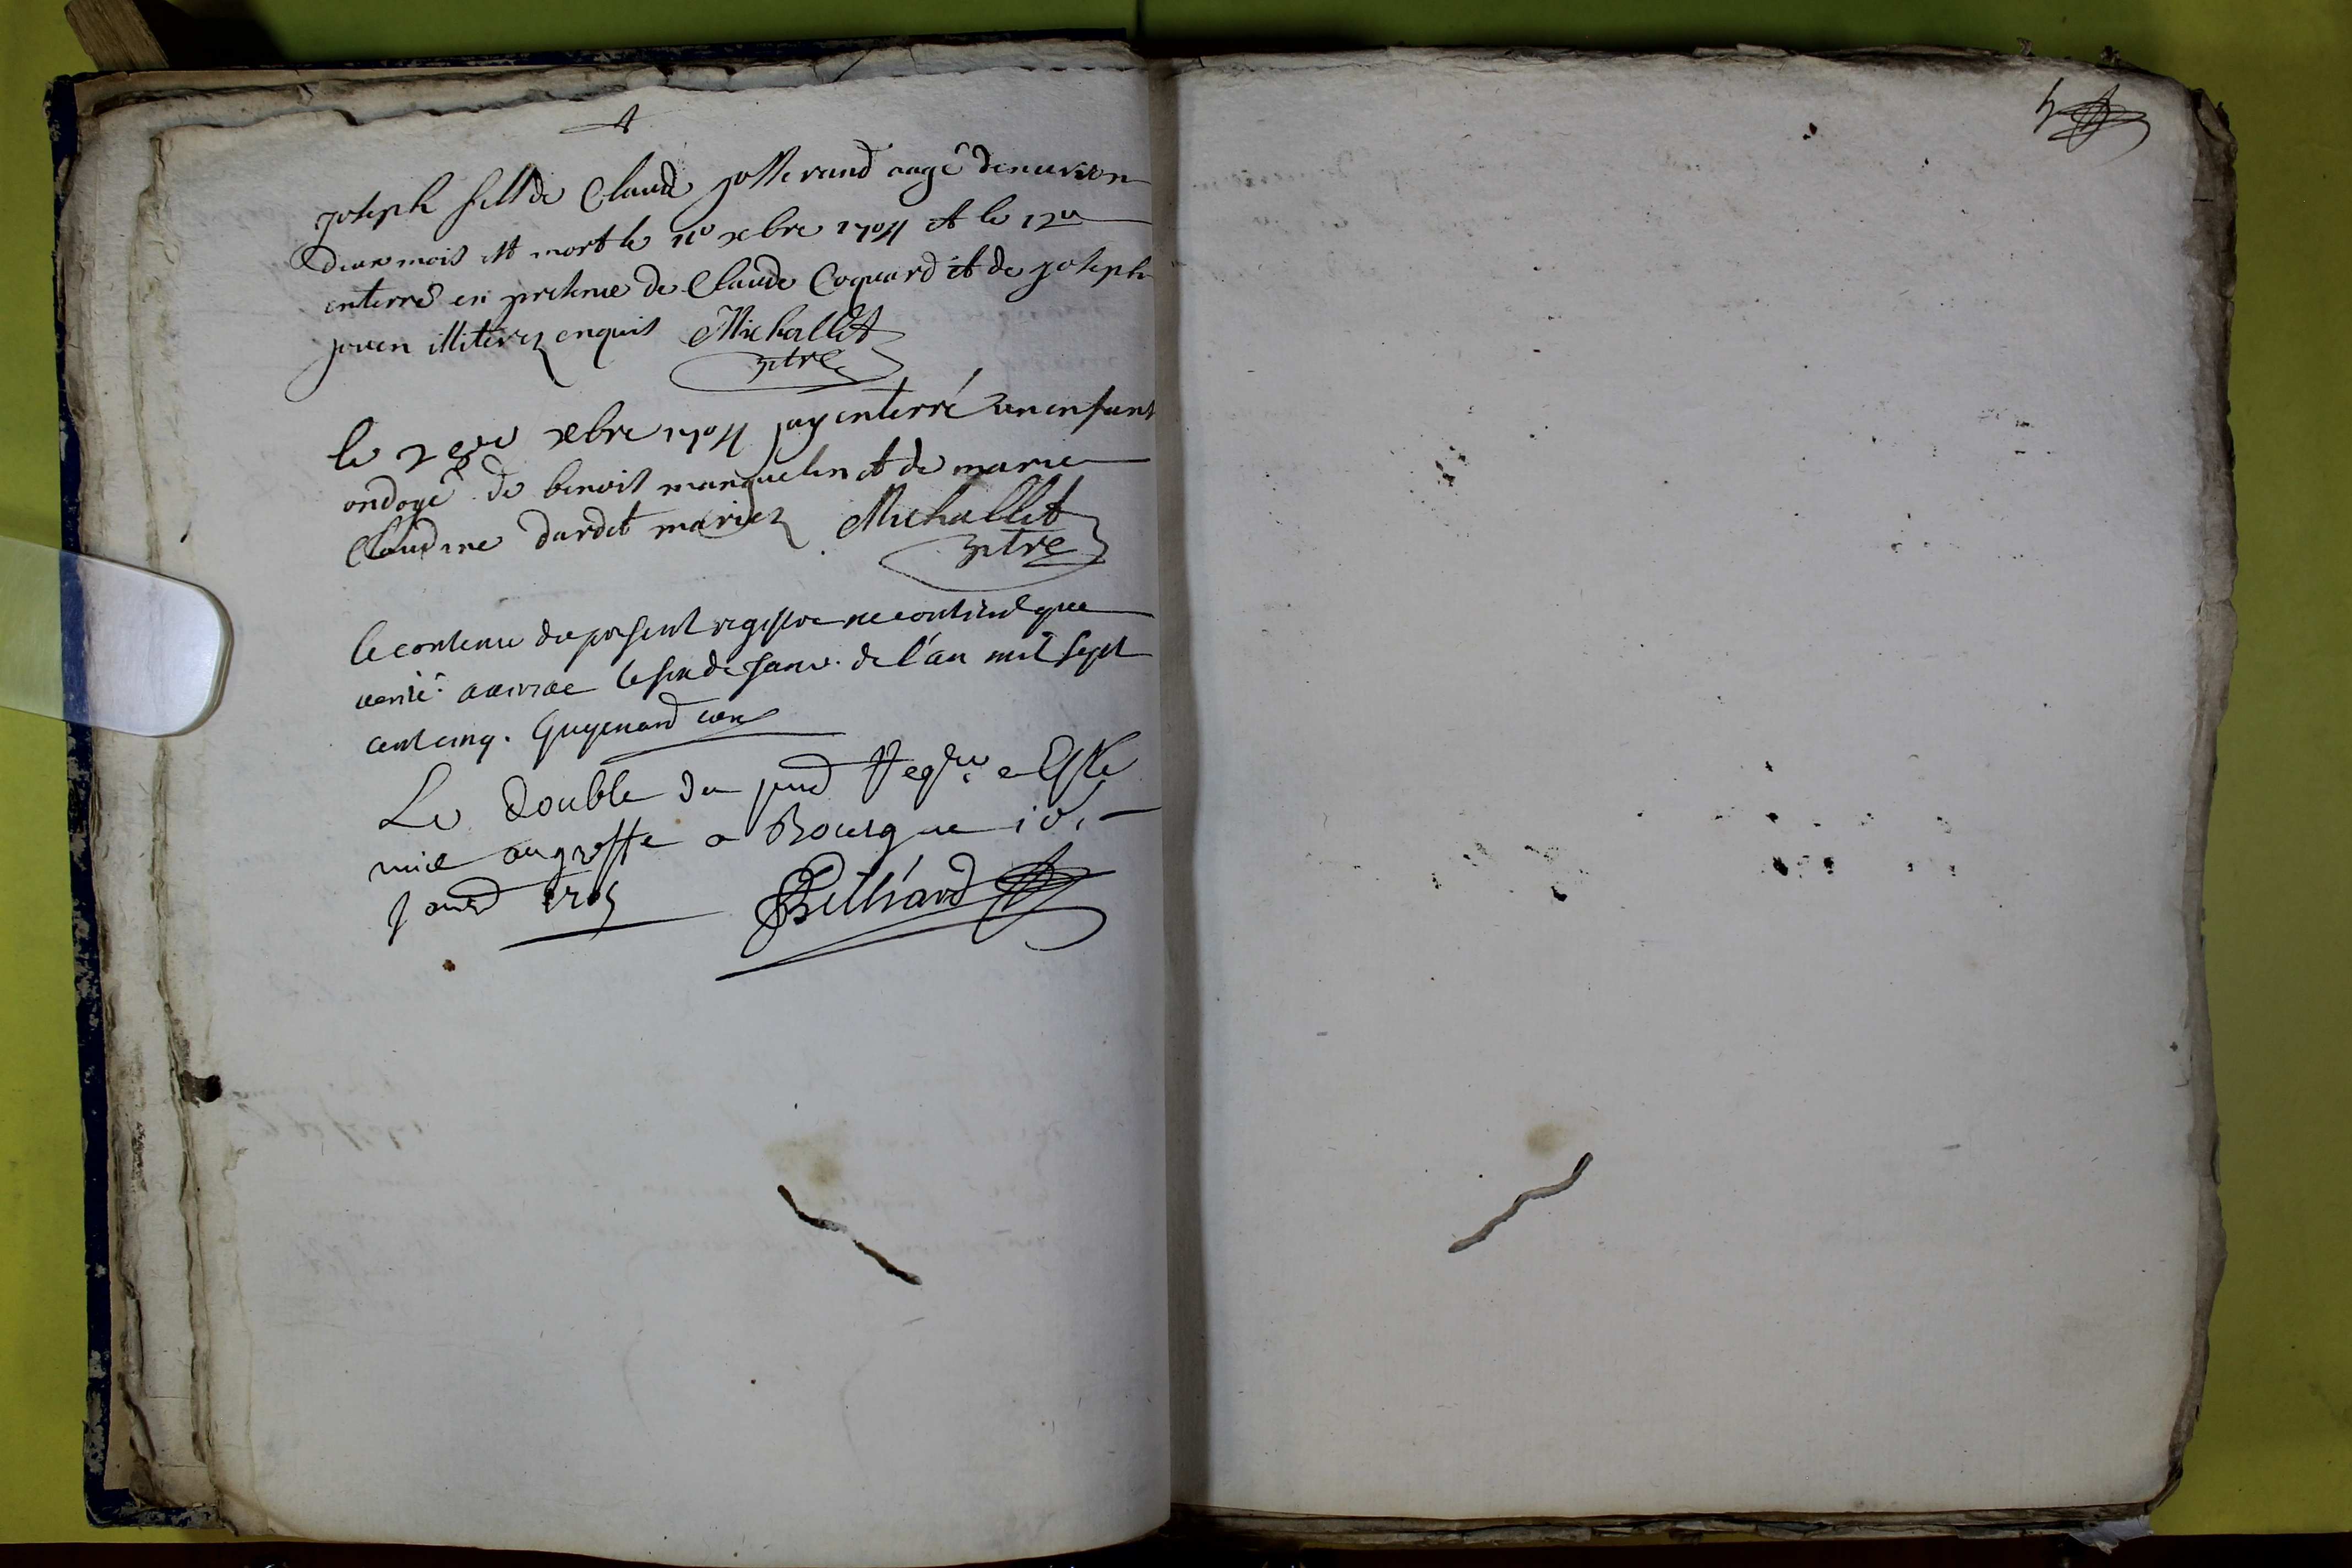 joseph fils de Claude josserand aagé denuiron
deux mois est mort le 11e xbre 1704 et le 12e
enterré en presence de Claude Coquard et de joseph
joven illiterez enquis Michallet
ptre
le 28e xbre 1704 jay enterré un enfant
ondoyé de benoist manguelin et de marie
Claudine dardet mariez Michallet
ptre
le contenu du present registre ne contient que
verité le six de janv. de l'an mil sept
cent cinq. Guyenard
Le double du pnt Regre a Este
mis au greffe a Bourg ce 10e
janv 1705 Billiard